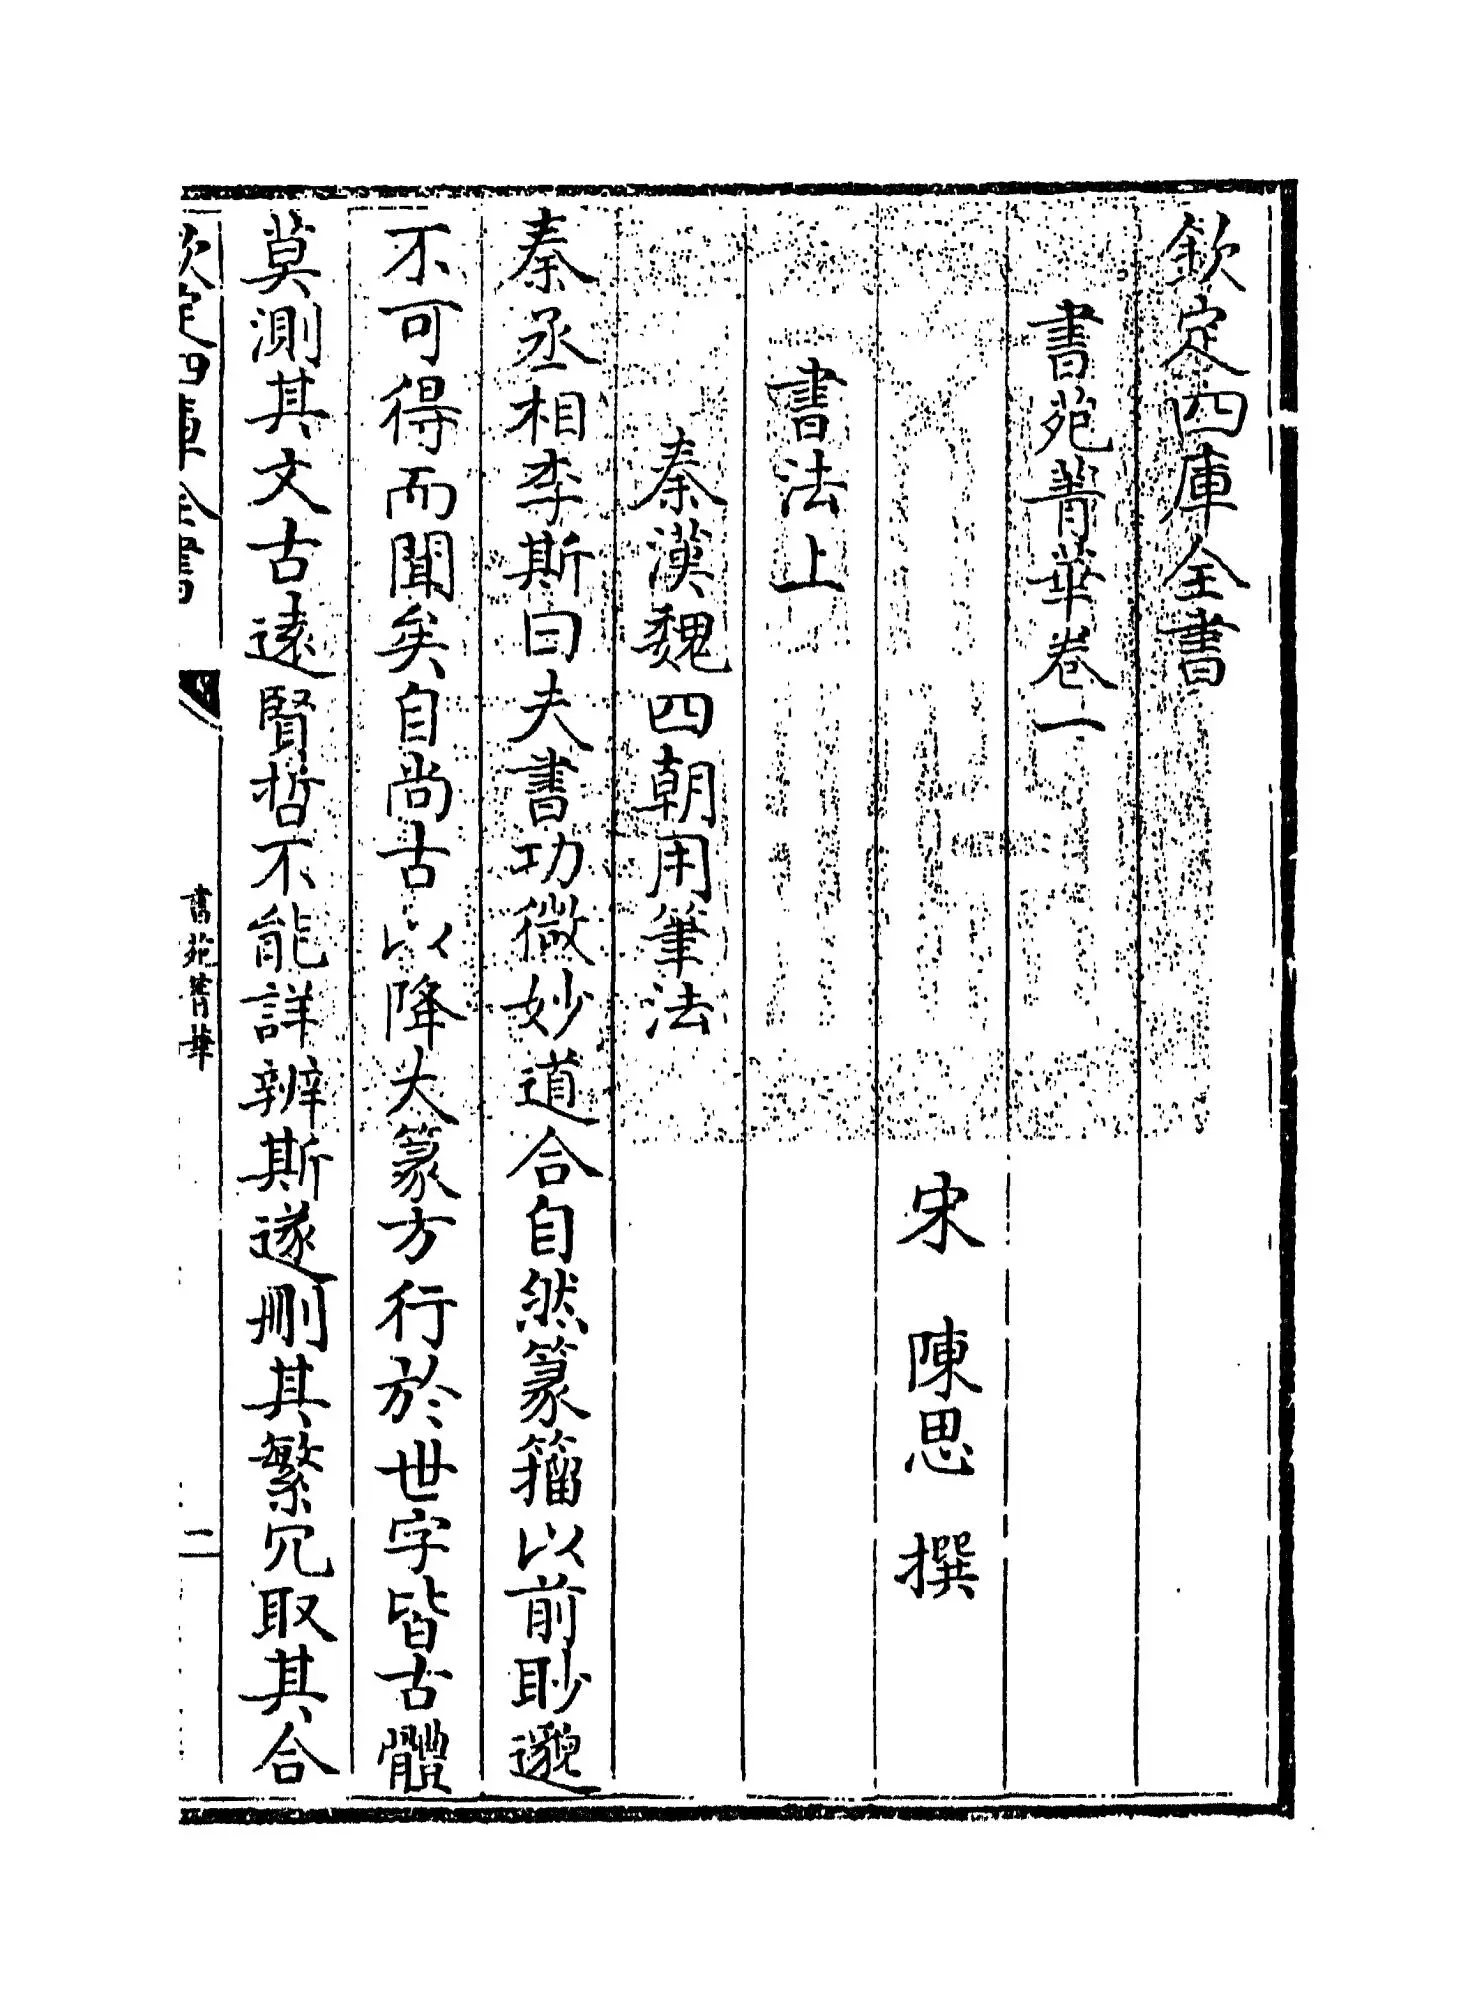 欽定四庫全書
書苑菁華卷一
宋　陳思　撰
書法上
秦漢魏四朝用筆法
秦丞相李斯曰夫書功微妙道合自然篆籀以前眇邈
不可得而聞矣自尚古以降大篆方行於世字皆古體
莫測其文古遠賢哲不能詳辨斯遂刪其繁冗取其合
欽定四庫全書
書苑菁華
二